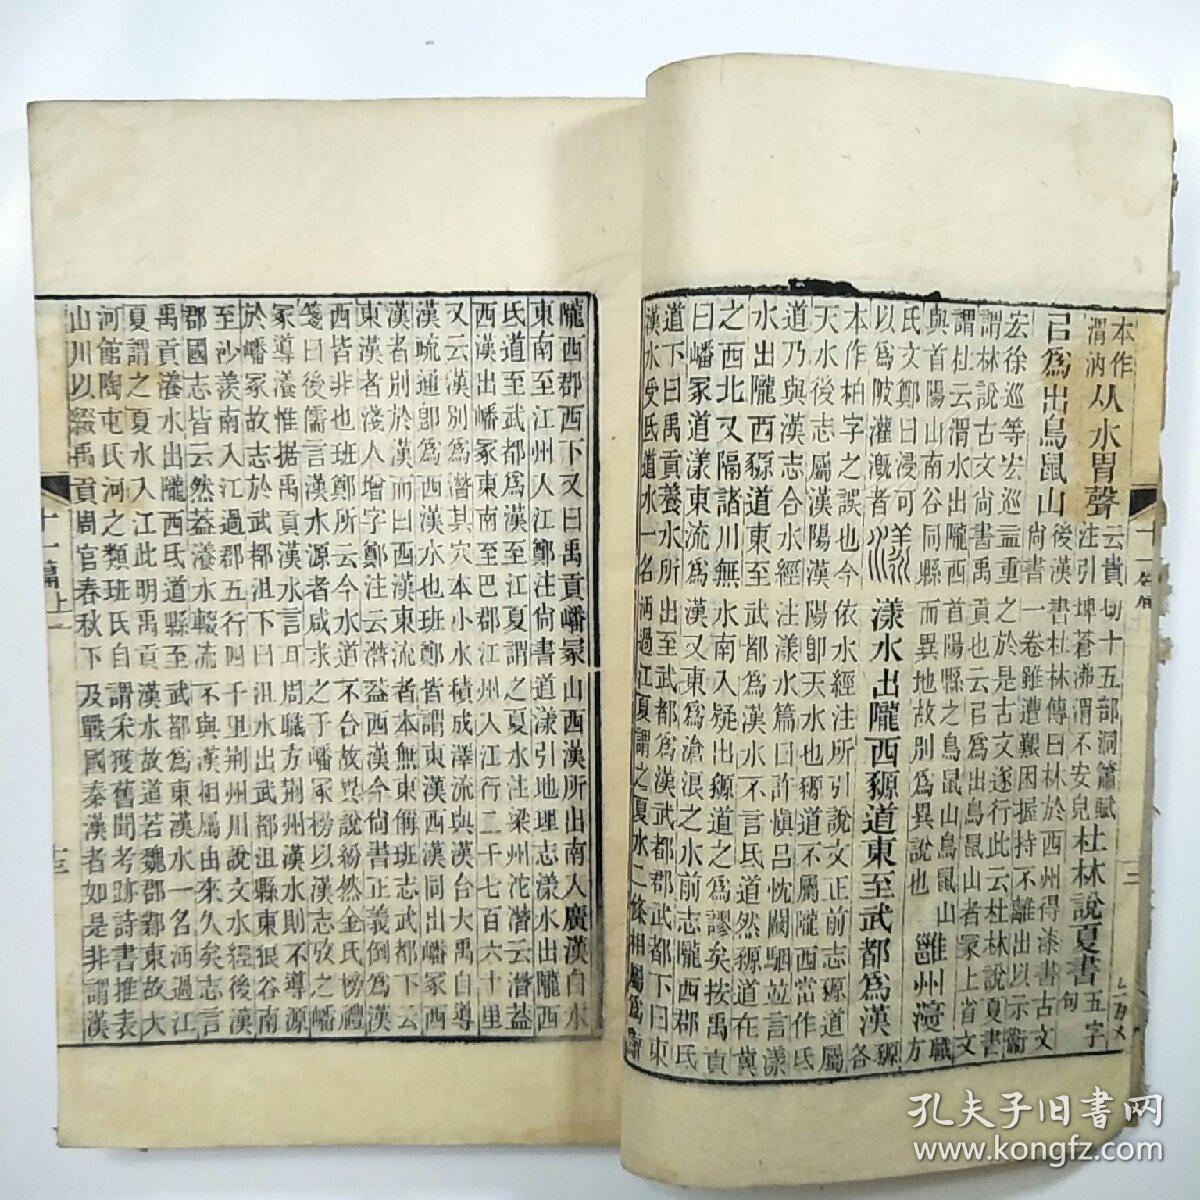 本作
渭汭
从水胃聲
云貴切十五部洞簫賦
注引埤蒼沸渭不安皃
杜林說夏書
五字
句
㠯為出鳥鼠山
後漢書杜林傳曰林於西州得漆書古文
尚書一卷雖遭艱困握持不離出以示衞
宏徐巡等宏巡益重之於是古文遂行此云杜林說夏書
謂林說古文尚書禹貢也云㠯為出鳥鼠山者冡上省文
謂杜云渭水出隴西首陽縣之鳥鼠山鳥鼠山
與首陽山南谷同縣而異地故別為異說也
雝州浸
職
方
氏文鄭曰浸可
以為陂灌溉者
漾
漾水出隴西豲道東至武都為漢
豲
各
本作柏字之誤也今依水經注所引說文正前志豲道屬
天水後志屬漢陽漢陽卽天水也豲道不屬隴西當作氐
道乃與漢志合水經注漾水篇曰許慎呂忱闞駰並言漾
水出隴西豲道東至武都為漢水不言氐道然豲道在冀
之西北又隔諸川無水南入疑出豲道之為謬矣按禹貢
曰嶓冢道漾東流為漢又東為滄浪之水前志隴西郡氐
道下曰禹貢養水所出至武都為漢武都郡武都下曰東
漢水受氐道水一名沔過江夏謂之夏水二條相屬為
隴西郡西下又曰禹貢嶓冢山西漢所出南入廣漢白水
東南至江州入江鄭注尚書道漾引地理志漾水出隴西
氐道至武都為漢至江夏謂之夏水注梁州沱潛云潛葢
西漢出嶓冢東南至巴郡江州入江行二千七百六十里
又云漢別為潛其穴本小水積成澤流與漢合大禹自導
漢疏通卽為西漢水也班鄭皆謂東漢西漢同出嶓冢西
漢者別於漢而曰西漢東流者本無東偁班志武都下云
東漢者淺人增字鄭注云潛葢西漢今尚書正義倒為漢
西皆非也班鄭所云今水道不合故異說紛然金氏榜禮
箋曰後儒言漢水源者咸求之于嶓冢榜以漢志攷之嶓
冢導瀁惟据禹貢漢水言耳周職方荆州漢水則不導源
於嶓冢故志於武都沮下曰沮水出武都沮縣東狼谷南
至沙羨南入江過郡五行四千里荆州川說文水經後漢
郡國志皆云然葢瀁水輟流不與漢相屬由來久矣志言
禹貢瀁水出隴西氐道縣至武都為東漢水一名沔過江
夏謂之夏水入江此明禹貢漢水故道若魏郡鄴東故大
河館陶屯氏河之類班氏自謂采獲舊聞考跡詩書推表
山川以綴禹貢周官春秋下及戰國秦漢者如是非謂漢
十一篇上一
孔夫子旧书网
www.kongfz.com